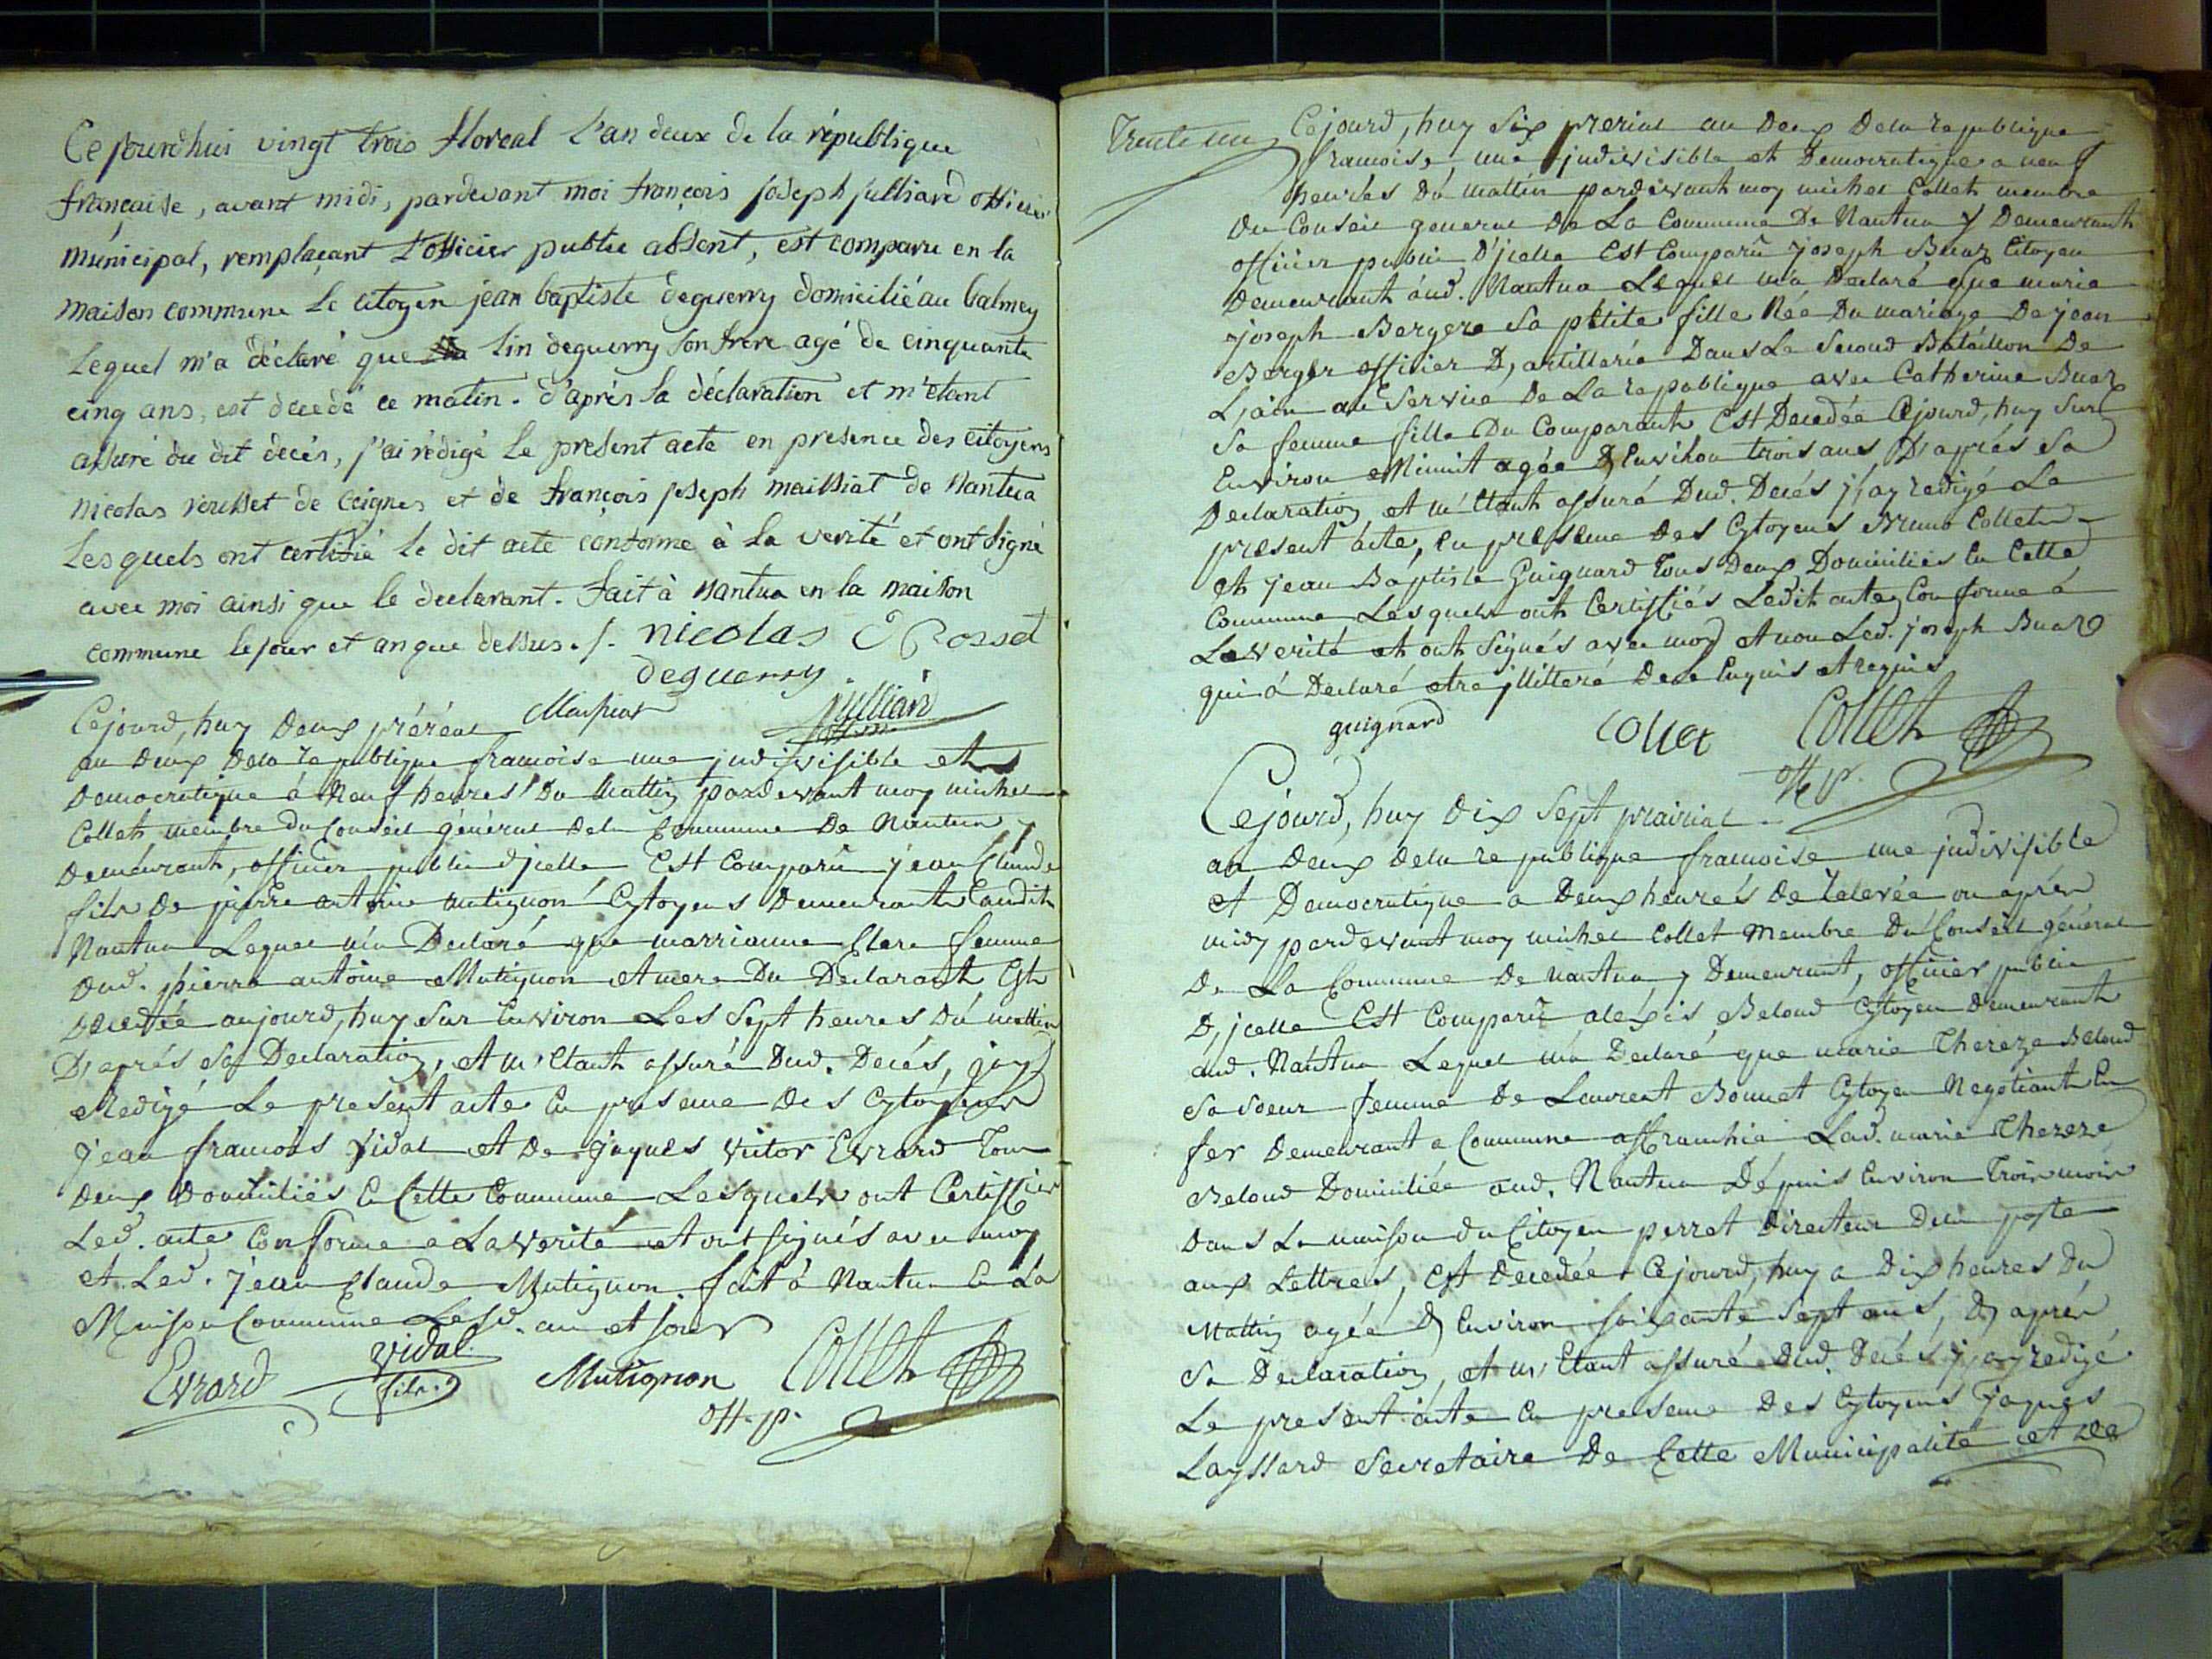 Ce jourdhui vingt trois floreal l'an deux de la république
française, avant midi, pardevant moi françois joseph julliard officier
municipal, remplaçant l'officier public absent, est comparu en la
maison commune le citoyen jean baptiste deguerry domicilié au balmey
lequel m'a déclaré que lin deguerry son frere agé de cinquante
cinq ans, est decedé ce matin. d'après sa déclaration et m'étant
assuré du dit decès, j'ai rédigé le present acte en presence des citoyens
nicolas rousset de ceignes et de françois joseph maissiat de Nantua
lesquels ont certifié le dit acte conforme à la verité et ont signé
avec moi ainsi que le declarant. fait à nantua en la maison
commune le jour et an que dessus ./. nicolas Rosset
deguerry
Maissiat julliard
Cejourd,huy Deux préréal
an Deux Dela republique francoise une jndivisible et
Democratique á Neuf heures Du Mattin pardevant moy michel
Collet membre du Conseil géneral dela Commune De Nantua y
Demeurant, officier public djcelle Est Comparû jean Claude
fils De pierre antoine mutignon Cytoyens Demeurants audit
Nantua Lequel m'a Declaré que marrianne Clere femme
dud. pierre antoine Mutignon et mere Du Declarant Est
Decedée aujourd,huy Sur Environ Les Sept heures Du mattin
D,aprés Sa Declaration, et m'Etant assuré Dud. Decés, jay
Redigé Le present acte En presence Des Cytoyens
Jean francois Vidal et De Jaques Victor Evrard Tous
Deux Domiciliés En Cette Commune Lesquels ont Certiffiés
Led. acte Conforme a La verité et ont signés avec moy
et Led. jean Claude Mutignon fait á Nantua En La
Maison Commune Lesd. an et jour
Evrard vidal fils Mutignon Collet
off. p.
Trente un
Cejourd,huy Six prerial an Deux Dela republique
francoise une jndivisible et Democratique a neuf
heures Du mattin pardevant moy michel Collet membre
Du Conseil general De La Commune De Nantua y Demeurant
officier public D'jcelle Est Comparû joseph Buaz Citoyen
Demeurant aud. Nantua Lequel m'a Declaré que marie
joseph Bergere Sa petite fille Née Du mariage De jean
Berger officier D,artillerie Dans Le Second Bataillon De
L'ain au Service De La republique avec Catherine Buaz
Sa femme fille Du Comparant Est Decedée Cejourd,huy Sur
Environ Minuit agée D,Environ trois ans D,aprés Sa
Declaration et m'Etant assuré Dud. Decés j'ay redigé Le
present acte, En presence Des Cytoyens Bruno Collet
et jean Baptiste Guignard Tous Deux Domiciliés En Cette
Commune Lesquels ont Certiffiés Ledit acte Conforme á
La verité et ont Signés avec moy et non Led. joseph Buaz
qui á Declaré etre jllitteré De ce Enquis et requis
guignard collet Collet
off. p.
Cejourd,huy Dix Sept prairial
an Deux Dela republique francoise une jndivisible
et Democratique a Deux heures De relevée ou aprés
midy pardevant moy michel Collet membre Du Conseil géneral
De La Commune De nantua y Demeurant, officier public
D,jcelle Est Comparû aléxis Beloud Cytoyen Demeurant
aud. Nantua Lequel m'a Declaré que marie Thereze Beloud
Sa soeur femme De Laurent Bonnet Cytoyen Negotiant En
fer Demeurant a Commune affranchie Lad. marie Thereze
Beloud Domiciliée aud. Nantua Dépuis Environ Trois mois
Dans La maison Du Citoyen perret Directeur Dela poste
aux Lettres, Est Decedée Cejourd,huy a Dix heures Du
Mattin agée D,Environ soixante Sept ans, D,aprés
Sa Declaration, et m'Etant assuré Dud. Decés j'ay redigé
Le present acte En presence Des Cytoyens Jaques
Layssard Secretaire De Cette Municipalité et De